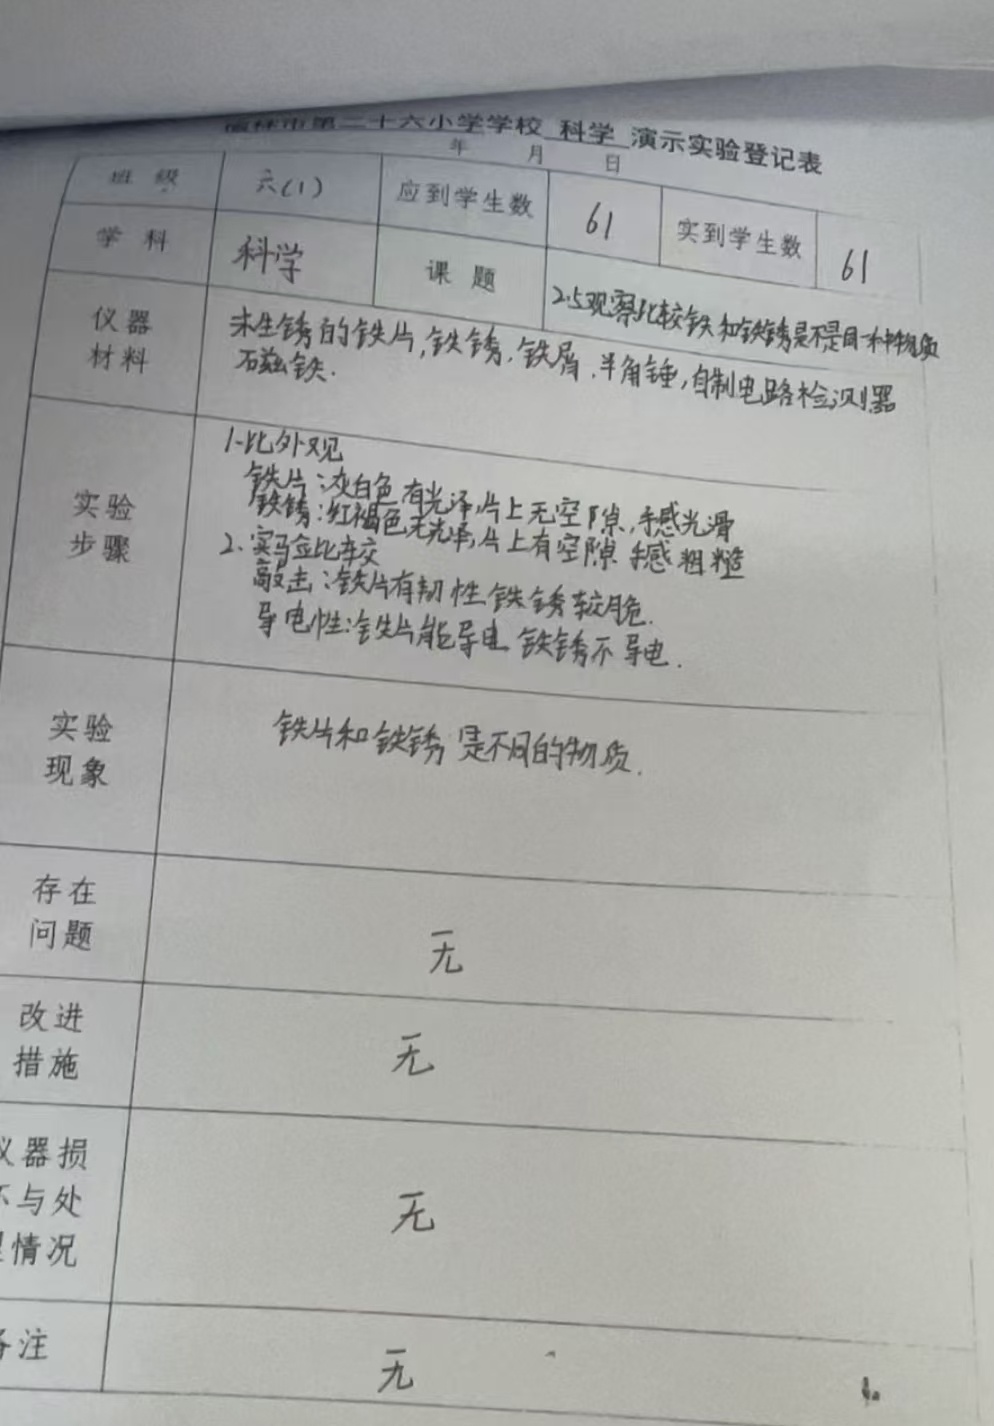 榆林市第二十六小学学校 科学 演示实验登记表
年 月 日
班级 六(1) 应到学生数 61 实到学生数 61
学科 科学 课题 2.5观察比较铁和铁锈是不是同一种物质
仪器材料 未生锈的铁片,铁锈,铁屑,羊角锤,自制电路检测器
石磁铁.
实验步骤 1.比外观
铁片:灰白色有光泽,片上无空隙,手感光滑
铁锈:红褐色无光泽,片上有空隙 手感粗糙
2.实验比较
敲击:铁片有韧性 铁锈较脆.
导电性:铁片能导电 铁锈不导电.
实验现象 铁片和铁锈是不同的物质.
存在问题 无
改进措施 无
仪器损坏与处理情况 无
备注 无